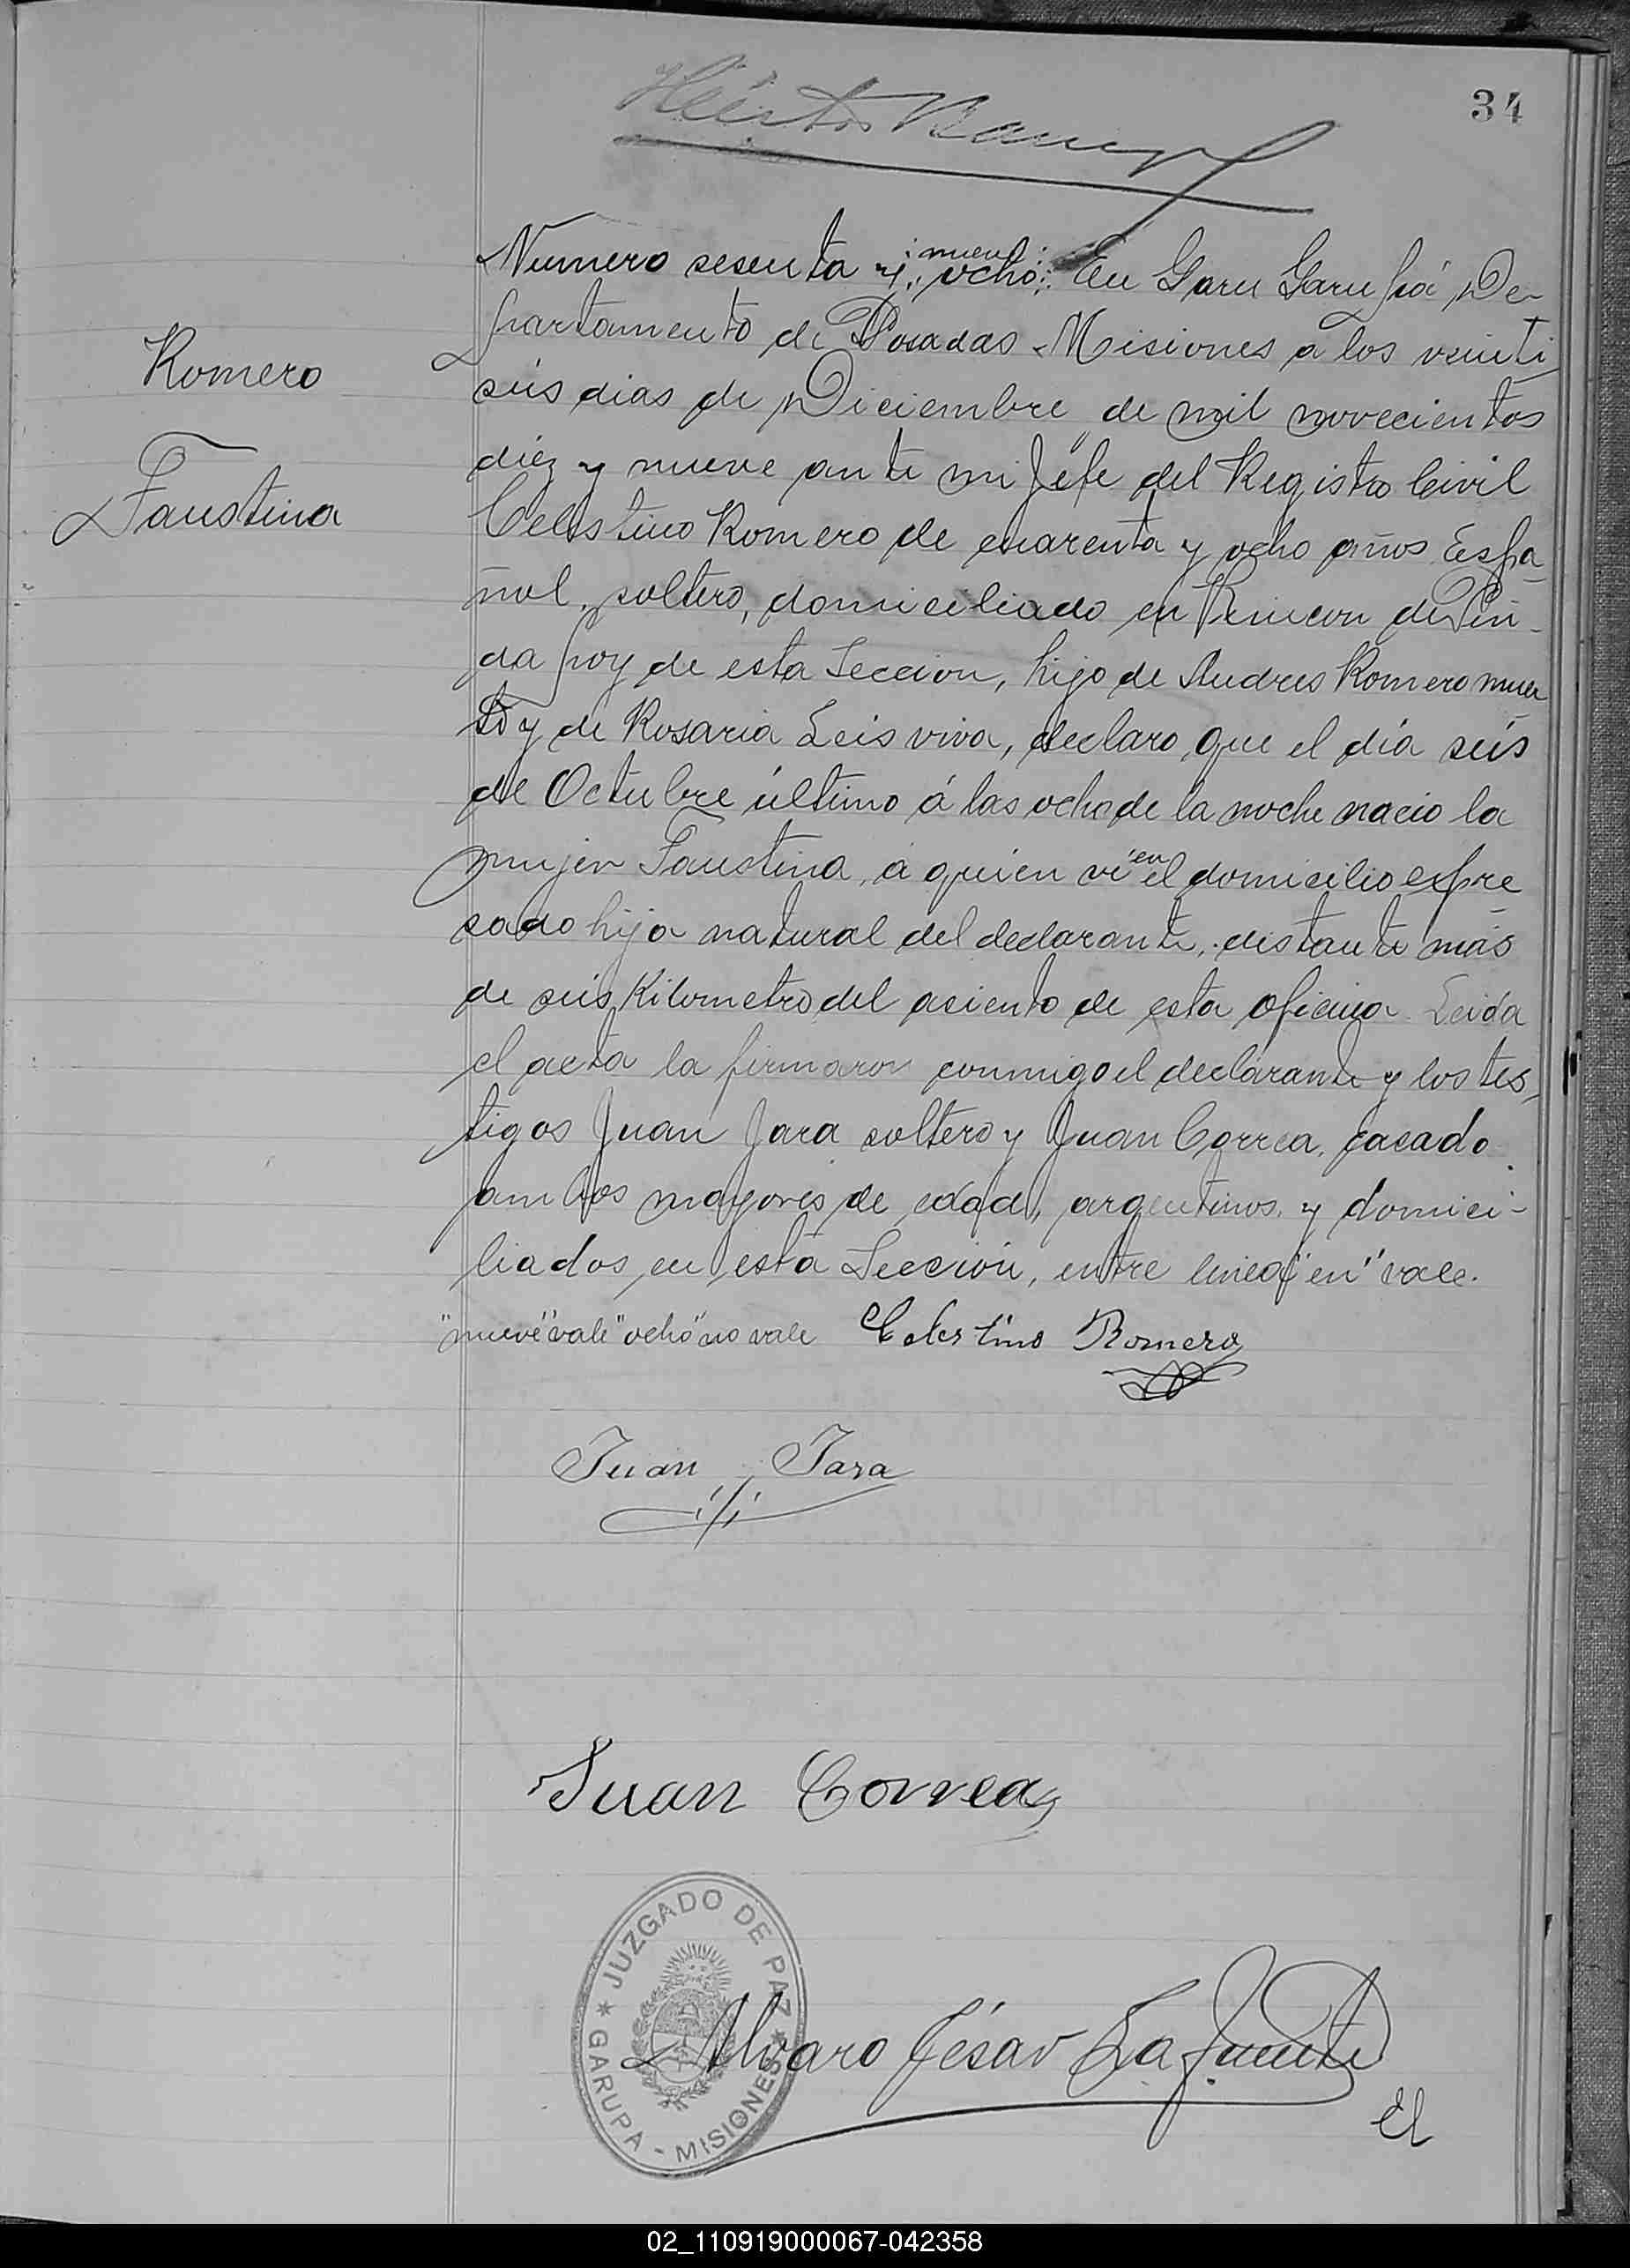 34
Héctor
Numero sesenta y :nueve: :ocho: En Garu Garupá, De-
partamento de Posadas Misiones a los veinti
seis dias de Diciembre de mil novecientos
diéz y nueve ante mi Jefe del Registro Civil
Romero
Faustina
Celestino Romero de cuarenta y ocho años Espa-
ñol, soltero, domiciliado en Rincon de Pin-
da poy de esta Seccion, hijo de Andres Romero muer
to y de Rosaria Leis viva, declaro que el día seis
de Octubre último á las ocho de la noche nacio la
mujer Faustina, á quien vi en el domicilio expre
sado hija natural del declarante, distante más
de seis Kilometro del asiento de esta oficina. Leida
el acta la firmaron conmigo el declarante y los tes-
tigos Juan Jara soltero y Juan Correa, casado
ambos mayores de edad, argentinos, y domici-
liados en esta Sección, entre linea "en" vale.
"nueve" vale "ocho" no vale Celestino Romero
Juan Jara
Juan Correa
JUZGADO DE PAZ
GARUPA - MISIONES
Alvaro César La fuente
El
02_110919000067-042358